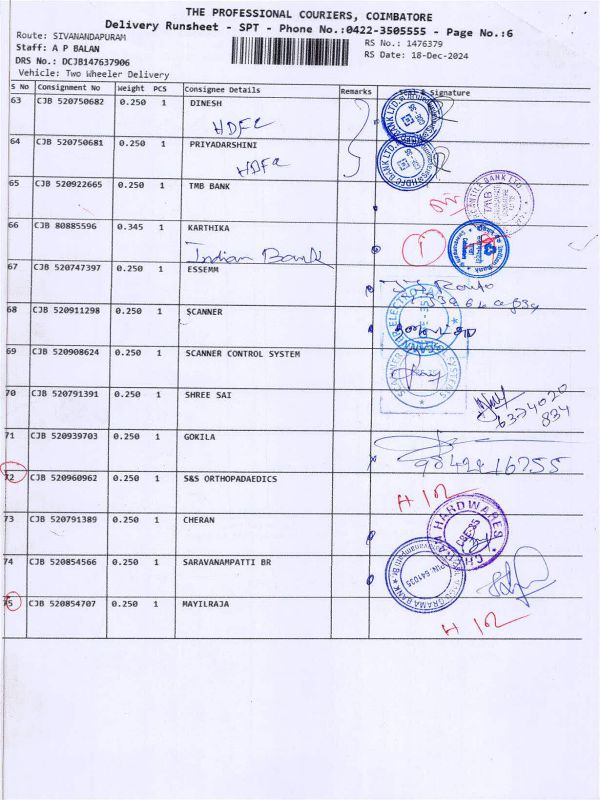 THE PROFESSIONAL COURIERS, COIMBATORE
Delivery Runsheet - SPT - Phone No.:0422-3505555 - Page No.:6
Route: SIVANANDAPURAM
RS No.: 1476379
Staff: A P BALAN
RS Date: 18-Dec-2024
DRS No.: DCJB147637906
Vehicle: Two Wheeler Delivery
S No Consignment No Weight PCS Consignee Details Remarks Seal & Signature
63 CJB 520750682 0.250 1 DINESH
HDFC
64 CJB 520750681 0.250 1 PRIYADARSHINI
HDFC
65 CJB 520922665 0.250 1 TMB BANK
66 CJB 80885596 0.345 1 KARTHIKA
Indian Bank
67 CJB 520747397 0.250 1 ESSEMM
68 CJB 520911298 0.250 1 SCANNER
69 CJB 520908624 0.250 1 SCANNER CONTROL SYSTEM
70 CJB 520791391 0.250 1 SHREE SAI
6374020
834
71 CJB 520939703 0.250 1 GOKILA
72 CJB 520960962 0.250 1 S&S ORTHOPADAEDICS
73 CJB 520791389 0.250 1 CHERAN
HARDWARES
74 CJB 520854566 0.250 1 SARAVANAMPATTI BR
PIN: 641035
75 CJB 520854707 0.250 1 MAYILRAJA